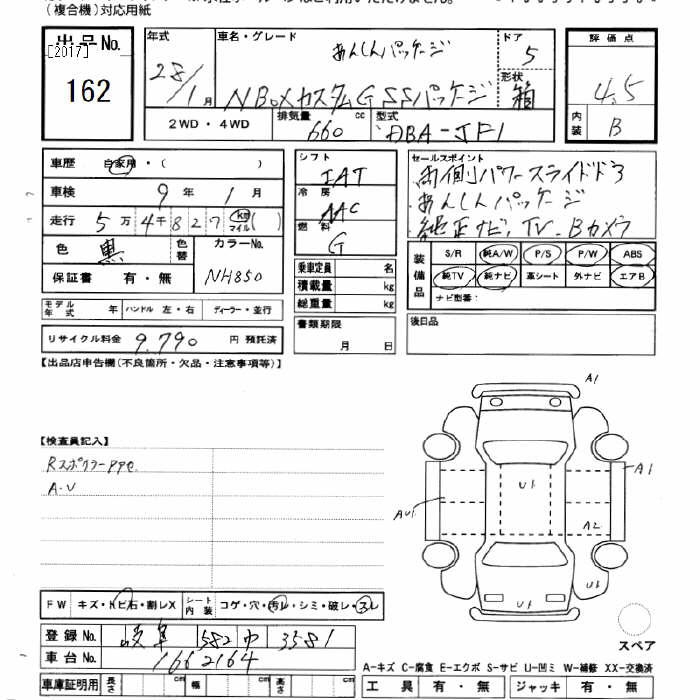 (複合機)対応用紙
出品No.
[2017]
162
年式
28/1月
車名・グレード
あんしんパッケージ
N BOXカスタムG SSパッケージ
ドア
5
形状
箱
2WD・4WD
排気量
660 cc
型式
DBA-JF1
評価点
4.5
内装
B
車歴 自家用・( )
車検 9年1月
走行 5万4千827 km マイル( )
色 黒 色替
カラーNo.
NH850
保証書 有・無
モデル年式 年 ハンドル 左・右 ディーラー・並行
リサイクル料金 9,790 円 預託済
シフト
IAT
冷房
AAC
燃料
G
乗車定員 名
積載量 kg
総重量 kg
書類期限
月 日
セールスポイント
両側パワースライドドア
あんしんパッケージ
純正ナビ、TV、Bカメラ
装備品
S/R 純A/W P/S P/W ABS
純TV 純ナビ 革シート 外ナビ エアB
ナビ型番:
後日品
【出品店申告欄(不良箇所・欠品・注意事項等)】
【検査員記入】
Rスポイラーアアc
A・U
FW キズ・トビ石・割レX
シート内装 コゲ・穴・汚レ・シミ・破レ・スレ
登録No. 岐阜 582 や 3581
車台No. 1662164
車庫証明用 長さ cm 幅 cm 高さ cm
A1
A1
U1
AU1
A2
U1
スペア
A-キズ C-腐食 E-エクボ S-サビ U-凹ミ W-補修 XX-交換済
工具 有・無 ジャッキ 有・無